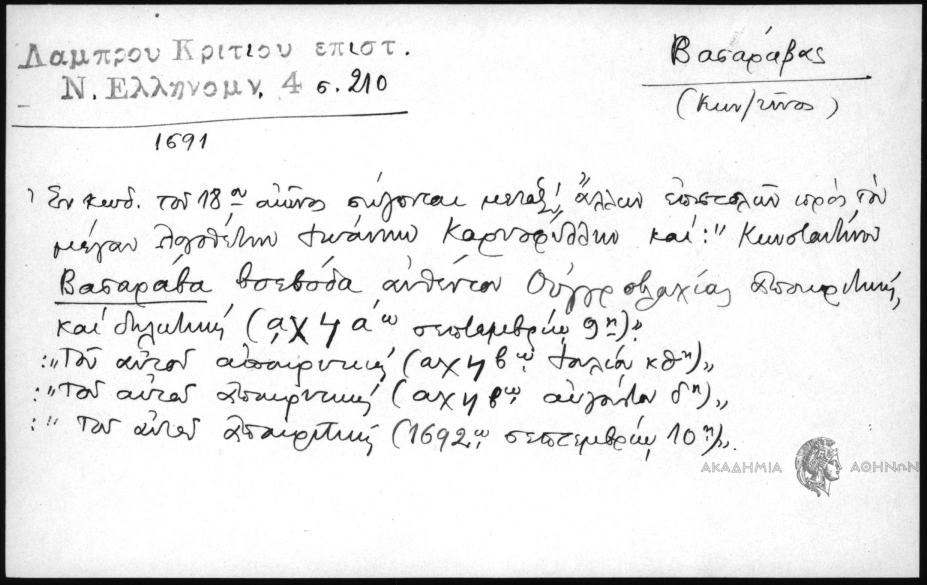 Λαμπρου Κριτιου επιστ.
Ν. Ελληνομν. 4 σ. 210
1691
Βασαράβας
(Κων/τῖνος)
Ἐν κωδ. τοῦ 18ου αἰῶνος σώζονται μεταξὺ ἄλλων ἐπιστολῶν πρὸς τὸν
μέγαν λογοθέτην Ἰωάννην Καρυοφύλλην καὶ: "Κωνσταντίνου
Βασαράβα βοεβόδα αὐθέντου Οὐγγροβλαχίας ἀποκριτική,
καὶ δηλωτική (αχϟαῳ σεπτεμβρίῳ 9ῃ)".
: "Τοῦ αὐτοῦ ἀποκριτική (αχϟβῳ Ἰουλίου κθῃ)"
: "Τοῦ αὐτοῦ ἀποκριτική (αχϟβῳ αὐγούστου δῃ)"
: "Τοῦ αὐτοῦ ἀποκριτική (1692ῳ σεπτεμβρίῳ 10ῃ)".
ΑΚΑΔΗΜΙΑ ΑΘΗΝΩΝ